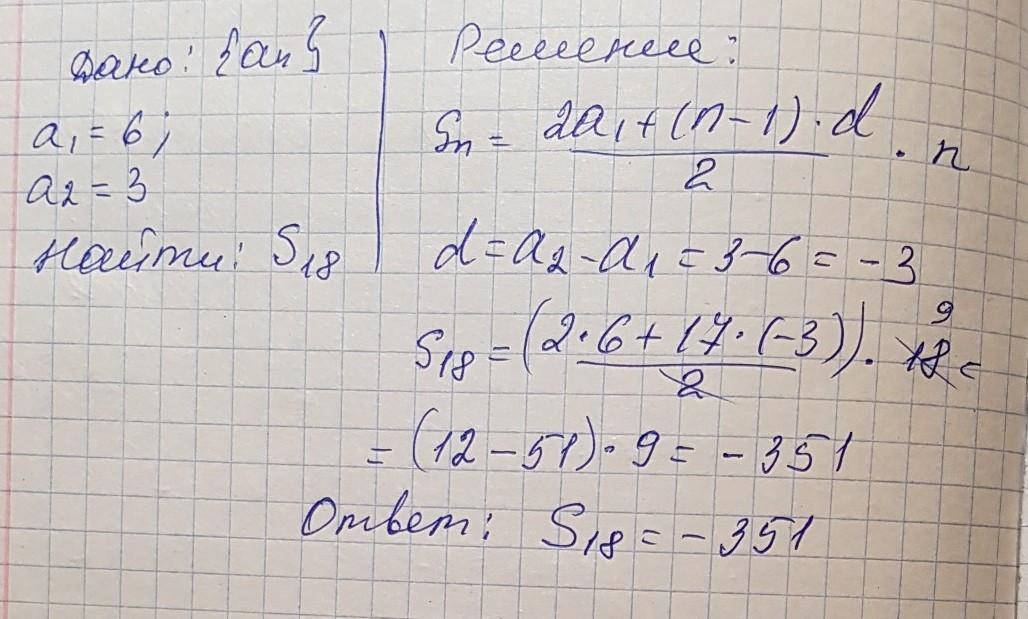 Дано: {an}
a₁ = 6;
a₂ = 3
Найти: S₁₈
Решение:
Sn = (2a₁ + (n - 1) · d) / 2 · n
d = a₂ - a₁ = 3 - 6 = - 3
9
S₁₈ = (2 · 6 + 17 · (-3)) / 2 · 18 =
= (12 - 51) · 9 = - 351
Ответ: S₁₈ = - 351